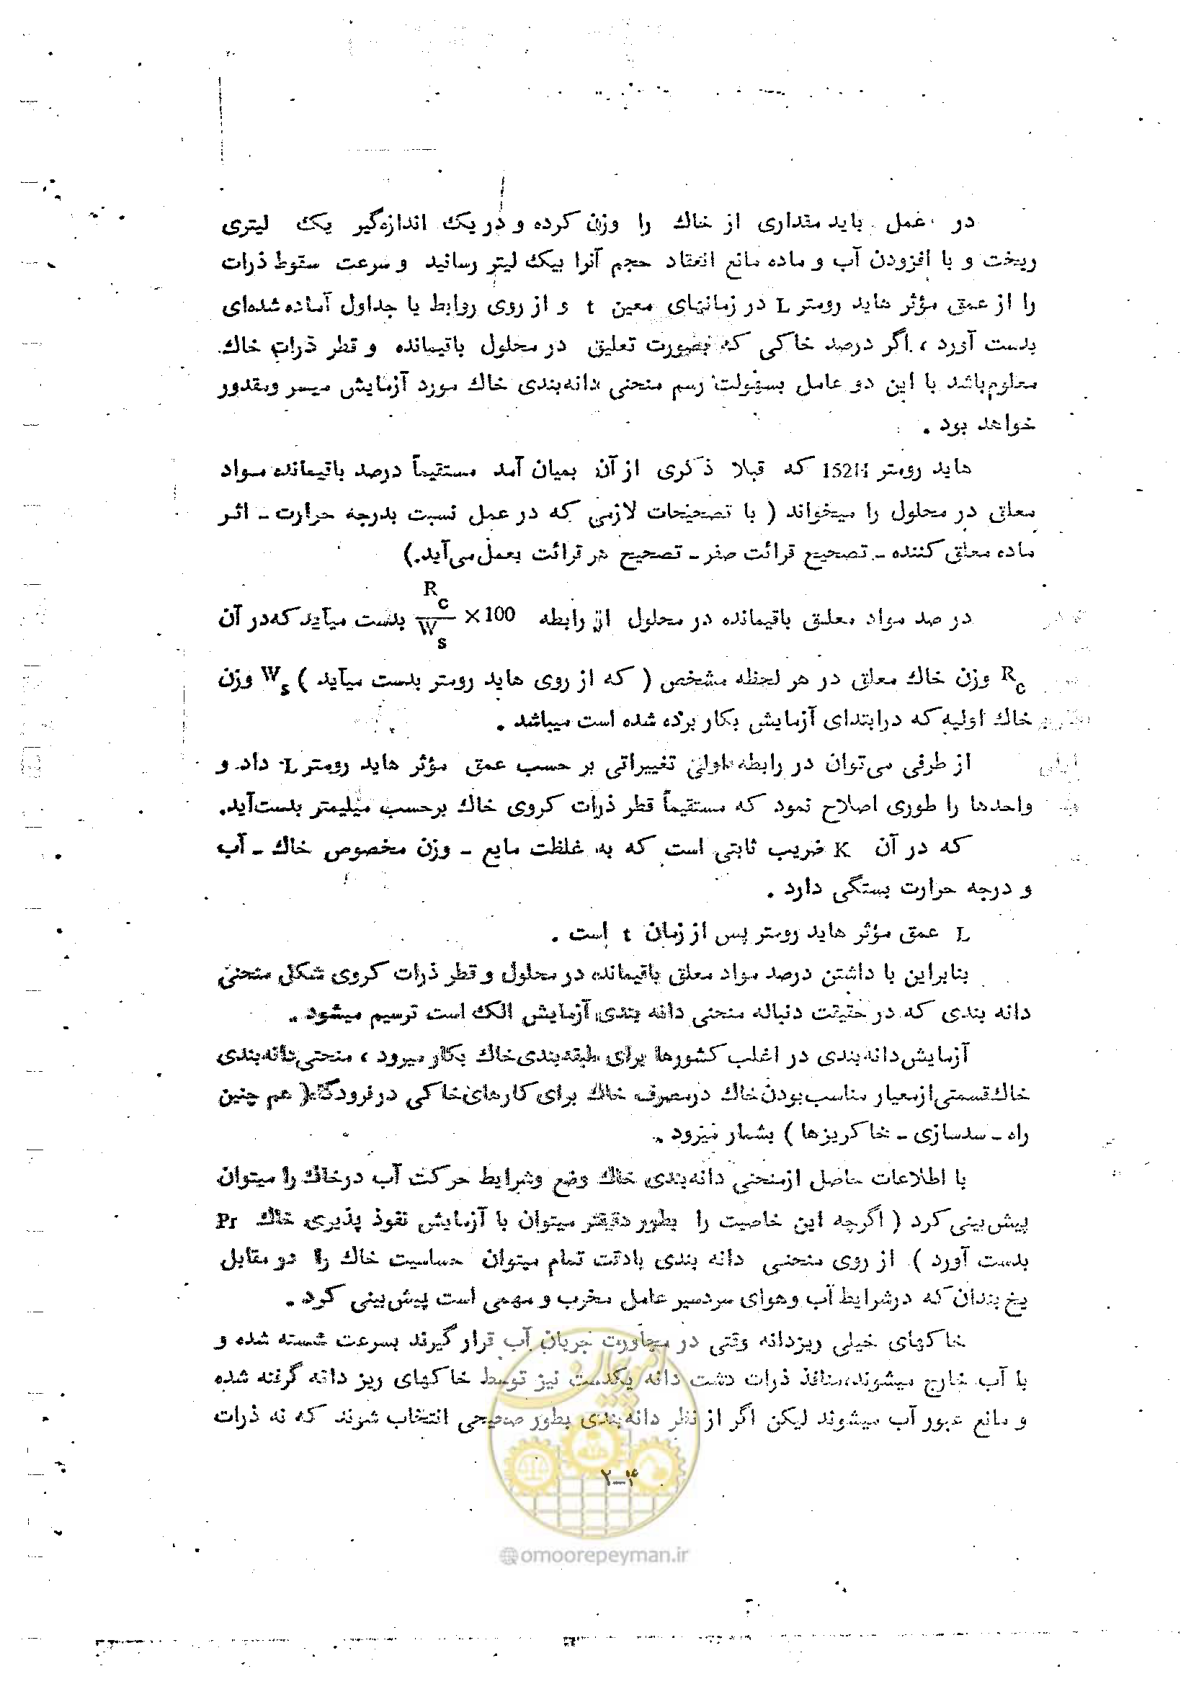 در عمل باید مقداری از خاك را وزن کرده و در یك اندازه‌گیر یك لیتری
ریخت و با افزودن آب و ماده مانع انعقاد حجم آنرا بیك لیتر رسانید و سرعت سقوط ذرات
را از عمق مؤثر هاید رومتر L در زمانهای معین t و از روی روابط یا جداول آماده شده‌ای
بدست آورد ، اگر درصد خاکی که بصورت تعلیق در محلول باقیمانده و قطر ذرات خاك
معلوم‌باشد با این دو عامل بسهولت رسم منحنی دانه‌بندی خاك مورد آزمایش میسر ومقدور
خواهد بود .
هاید رومتر 152H که قبلا ذکری از آن بمیان آمد مستقیماً درصد باقیمانده مواد
معلق در محلول را میخواند ( با تصحیحات لازمی که در عمل نسبت بدرجه حرارت ـ اثر
ماده معلق کننده ـ تصحیح قرائت صفر ـ تصحیح هر قرائت بعمل‌می‌آید.)
در صد مواد معلق باقیمانده در محلول از رابطه Rc/Ws ×100 بدست میآید که‌در آن
Rc وزن خاك معلق در هر لحظه مشخص ( که از روی هاید رومتر بدست میآید ) Ws وزن
خاك اولیه که درابتدای آزمایش بکار برده شده است میباشد .
از طرفی می‌توان در رابطه اولی تغییراتی بر حسب عمق مؤثر هاید رومتر L داد و
واحدها را طوری اصلاح نمود که مستقیماً قطر ذرات کروی خاك برحسب میلیمتر بدست‌آید.
که در آن K ضریب ثابتی است که به غلظت مایع ـ وزن مخصوص خاك ـ آب
و درجه حرارت بستگی دارد .
L عمق مؤثر هاید رومتر پس از زمان t است .
بنابراین با داشتن درصد مواد معلق باقیمانده در محلول و قطر ذرات کروی شکل منحنی
دانه بندی که در حقیقت دنباله منحنی دانه بندی آزمایش الك است ترسیم میشود .
آزمایش‌دانه‌بندی در اغلب کشورها برای طبقه‌بندی‌خاك بکار میرود ، منحنی‌دانه‌بندی
خاك‌قسمتی‌ازمعیار مناسب‌بودن‌خاك درمصرف خاك برای کارهای‌خاکی در فرودگاه( هم چنین
راه ـ سدسازی ـ خاکریزها ) بشمار میرود .
با اطلاعات حاصل ازمنحنی دانه‌بندی خاك وضع وشرایط حرکت آب درخاك را میتوان
پیش‌بینی کرد ( اگرچه این خاصیت را بطور دقیقتر میتوان با آزمایش نفوذ پذیری خاك Pr
بدست آورد ) از روی منحنی دانه بندی بادقت تمام میتوان حساسیت خاك را در مقابل
یخ‌بندان که درشرایط آب وهوای سردسیر عامل مخرب و مهمی است پیش‌بینی کرد .
خاکهای خیلی ریزدانه وقتی در مجاورت جریان آب قرار گیرند بسرعت شسته شده و
با آب خارج میشوند،منافذ ذرات دشت دانه یکدست نیز توسط خاکهای ریز دانه گرفته شده
و مانع عبور آب میشوند لیکن اگر از نظر دانه‌بندی بطور صحیحی انتخاب شوند که نه ذرات
۲-۴
امور پیمان
@omoorepeyman.ir